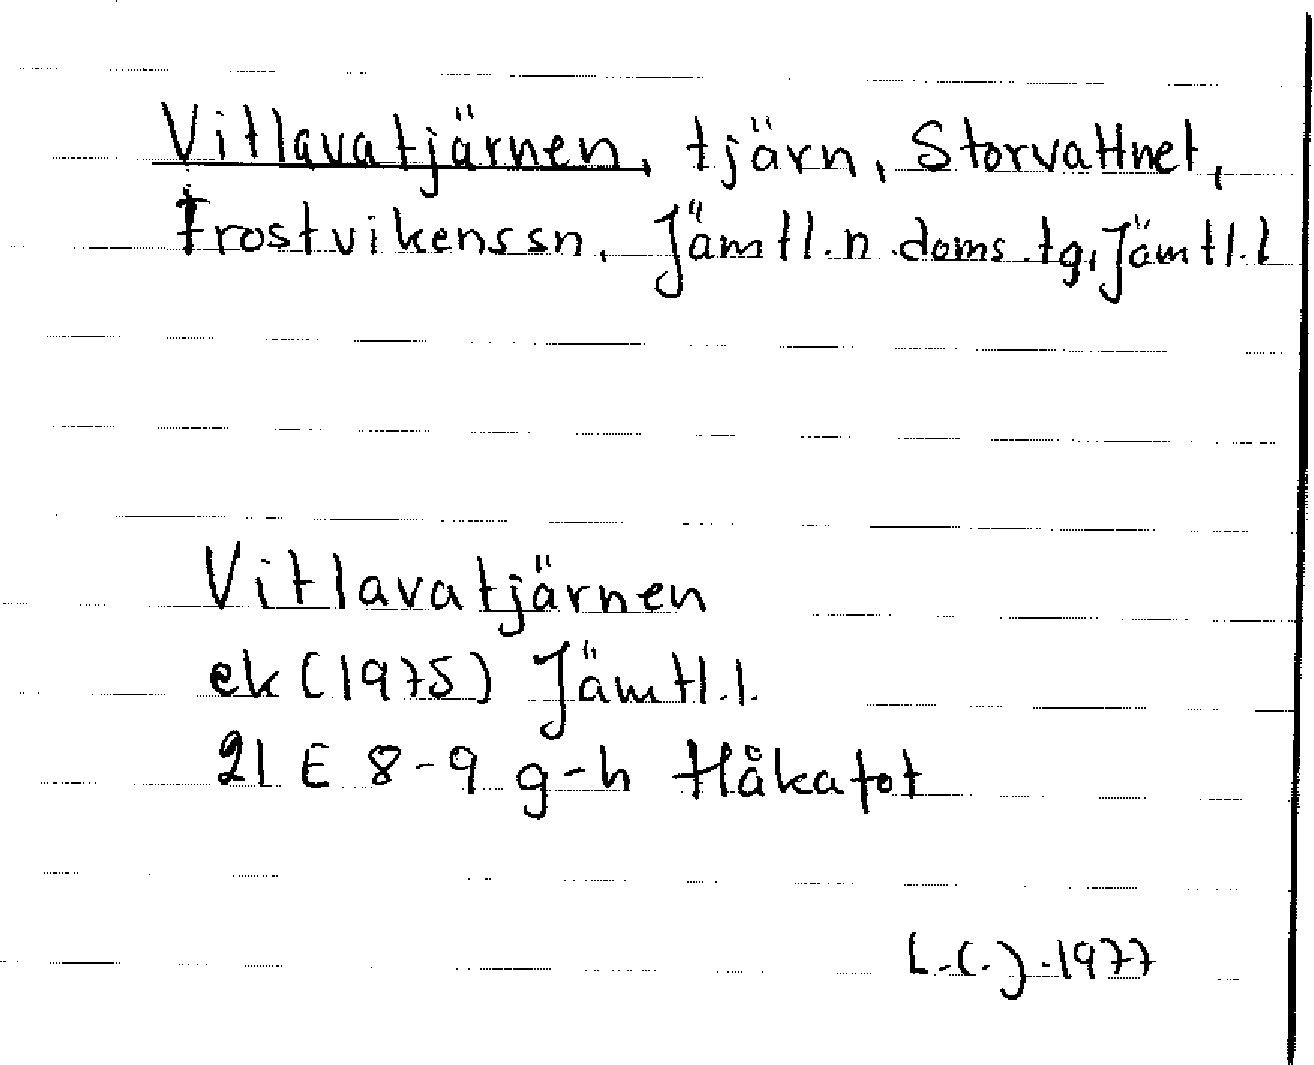 Vitlavatjärnen, tjärn, Storvattnet,
Frostvikens sn, Jämtl. n doms. tg, Jämtl. l
Vitlavatjärnen
ek (1975) Jämtl. l.
21 E 8-9 g-h Håkafot
L.C.J. 1977